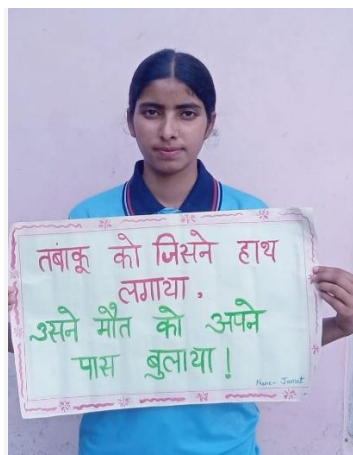 तंबाकू को जिसने हाथ
लगाया,
उसने मौत को अपने
पास बुलाया!
Name-